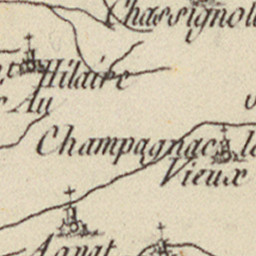 Chassignol
t Hilaire
Au
Champagnac le
Vieux
Agnat